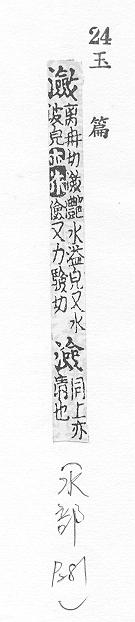 24
玉篇
瀲 離冉切瀲灩水溢皃又水
波皃又力驗切
澰 同上亦
清也
(水部)